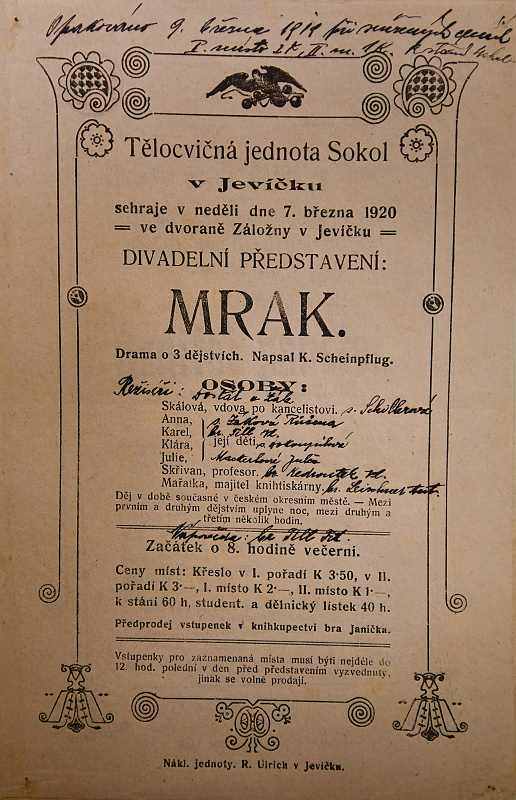 Opakováno 9. března 1919 při snížených cenách
I. místo 2K, II. m. 1K. k stání
Tělocvičná jednota Sokol
v Jevíčku
sehraje v neděli dne 7. března 1920
= ve dvoraně Záložny v Jevíčku =
DIVADELNÍ PŘEDSTAVENÍ:
MRAK.
Drama o 3 dějstvích. Napsal K. Scheinpflug.
OSOBY:
Režiséři: Dostál a Žák
Skálová, vdova po kancelistovi. s. Schillerová
Anna, s. Žáková Růžena
Karel, br. Till
Klára, její děti, s.
Julie,
Skřivan, profesor. br.
Mařatka, majitel knihtiskárny, br.
Děj v době současné v českém okresním městě. — Mezi
prvním a druhým dějstvím uplyne noc, mezi druhým a
třetím několik hodin.
Nápověda: br. Till
Začátek o 8. hodině večerní.
Ceny míst: Křeslo v I. pořadí K 3·50, v II.
pořadí K 3·—, I. místo K 2·—, II. místo K 1·—,
k stání 60 h, student. a dělnický lístek 40 h.
Předprodej vstupenek v knihkupectví bra Janíčka.
Vstupenky pro zaznamenaná místa musí býti nejdéle do
12. hod. polední v den před představením vyzvednuty,
jinak se volně prodají.
Nákl. jednoty. R. Ulrich v Jevíčku.